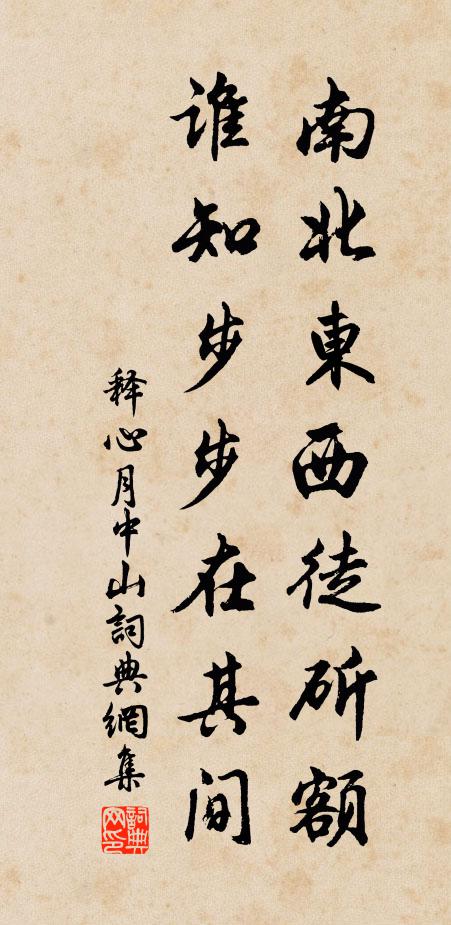 南北東西徒斫額
谁知步步在其间
释心月中山詞典網集
詞典网印